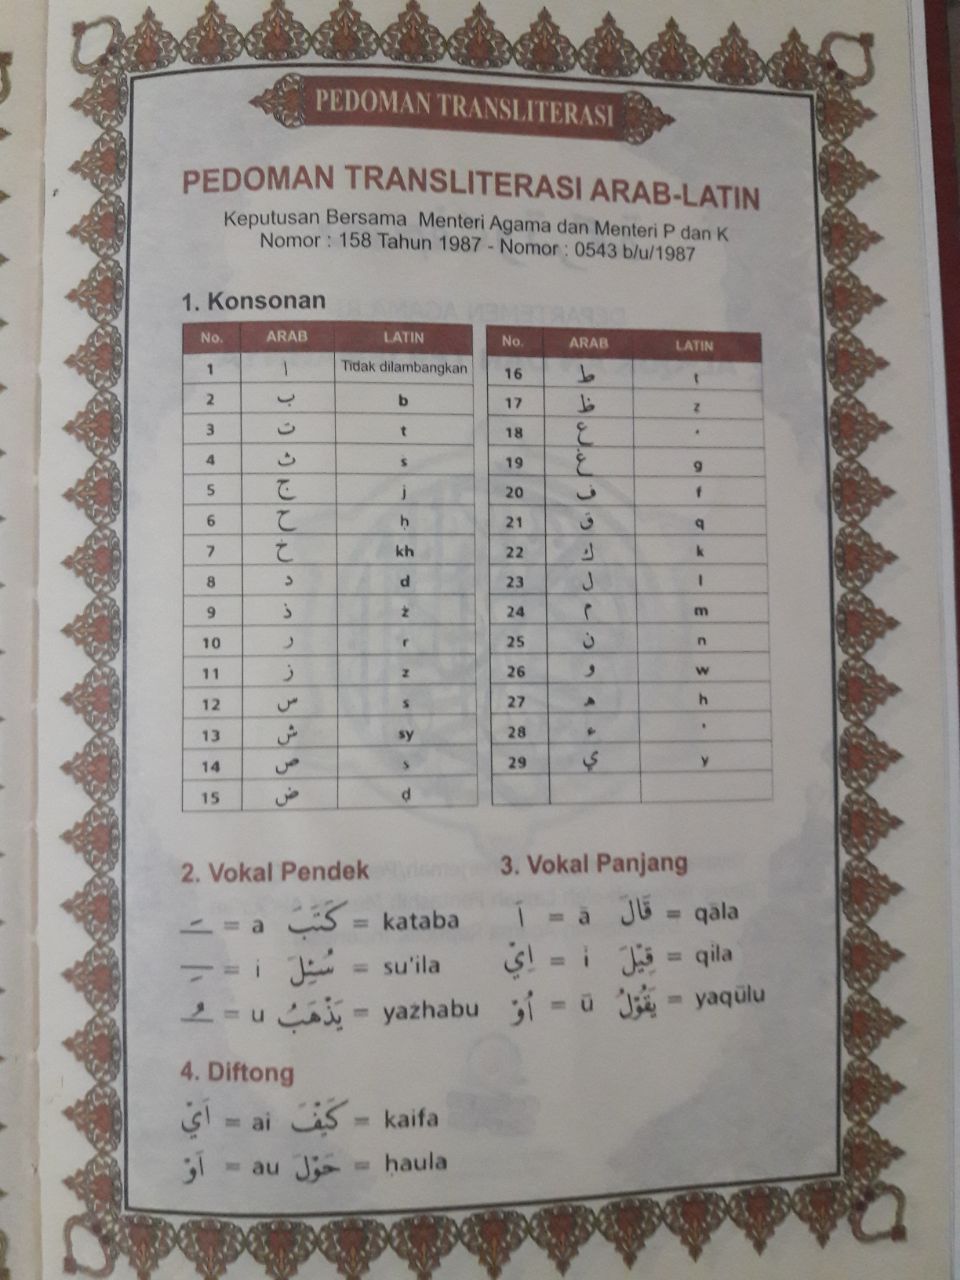 PEDOMAN TRANSLITERASI
PEDOMAN TRANSLITERASI ARAB-LATIN
Keputusan Bersama Menteri Agama dan Menteri P dan K
Nomor : 158 Tahun 1987 - Nomor : 0543 b/u/1987
1. Konsonan
No. ARAB LATIN
1 ا Tidak dilambangkan
2 ب b
3 ت t
4 ث s
5 ج j
6 ح ḥ
7 خ kh
8 د d
9 ذ ż
10 ر r
11 ز z
12 س s
13 ش sy
14 ص s
15 ض ḍ
No. ARAB LATIN
16 ط t
17 ظ z
18 ع ‘
19 غ g
20 ف f
21 ق q
22 ك k
23 ل l
24 م m
25 ن n
26 و w
27 ه h
28 ء '
29 ي y
2. Vokal Pendek
ـَ = a كَتَبَ = kataba
ـِ = i سُئِلَ = su'ila
ـُ = u يَذْهَبُ = yażhabu
3. Vokal Panjang
اَ = ā قَالَ = qāla
اِيْ = i قِيْلَ = qila
اُوْ = ū يَقُوْلُ = yaqūlu
4. Diftong
اَيْ = ai كَيْفَ = kaifa
اَوْ = au حَوْلَ = ḥaula